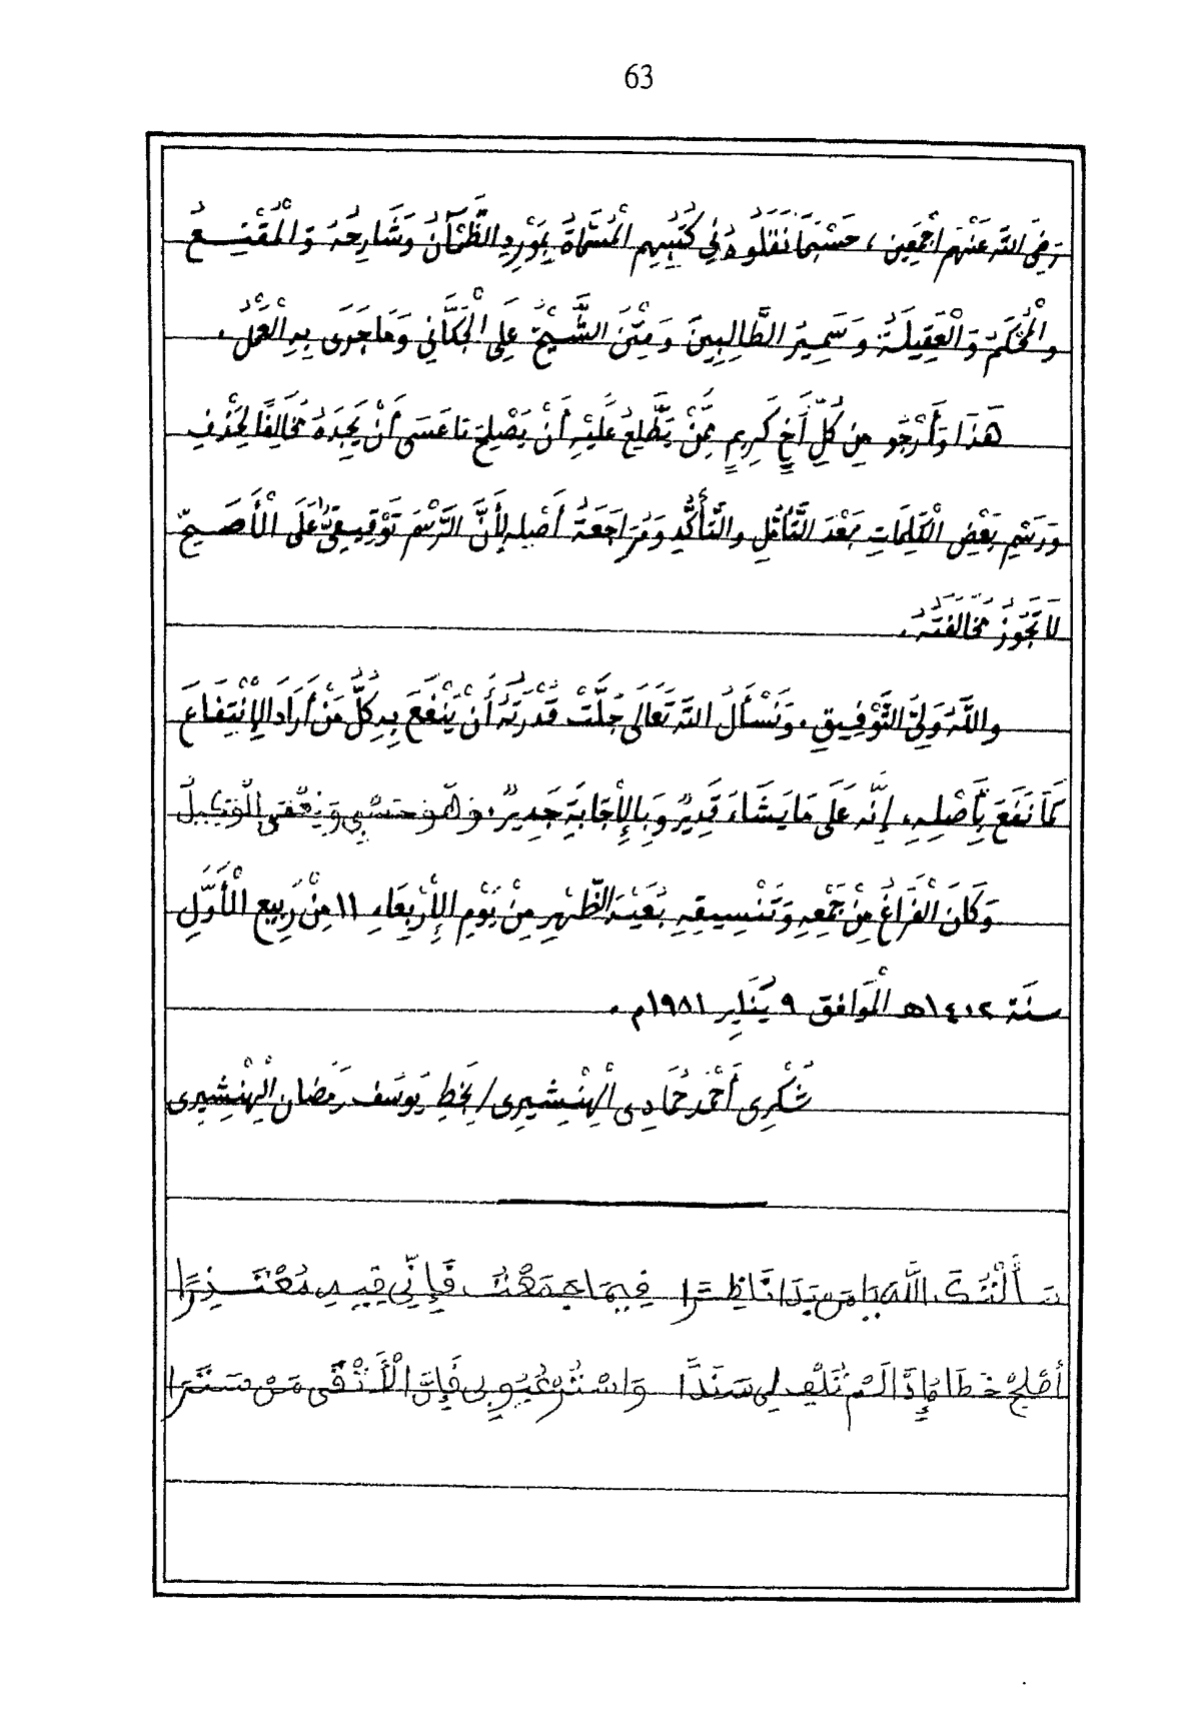 63
رَضِيَ اللَّهُ عَنْهُمْ أَجْمَعِين ، حَسْبَمَا نَقَلُوهُ فِي كُتُبِهِم الْمُسَمَّاةُ بِمَوْرِدِ الظَّمْآنُ وَشَارِحُهُ وَالْمُقْنِعُ
والْمُحْكَمُ وَالْعَقِيلَةُ وَسَمِيرُ الطَّالِبِينَ وَمَتْنَ الشَّيْخْ عَلِي الْجَكَّانِي وَمَا جَرَى بِهِ الْعَمَلُ ،
هَذَا وَأَرْجُو مِن كُلِّ أَخٍ كَرِيمٍ مِمَّنْ يَطَّلِعُ عَلَيْهِ أَنْ يَصْلِحَ مَا عَسَى أَنْ يَجِدَهُ مُخَالِفًا لِحَذْفِ
وَرَسْمِ بَعْضِ الْكَلِمَاتِ بَعْدَ التَّأَمُّلِ والتَّأَكُّدِ وَمُرَاجَعَةُ أَصْلِهِ لِأَنَّ الرَّسْمَ تَوْقِيفِيٌّ عَلَى الْأَصَحِّ
لَا تَجُوزُ مُخَالَفَتَهُ .
واللَّهُ وَلِيُّ التَّوْفِيقِ . وَنَسْأَلُ اللَّهَ تَعَالَى جَلَّتْ قُدْرَتُهُ أَنْ يَنْفَعَ بِهِ كُلَّ مَنْ أَرَادَ الِإنْتِفَاعَ
كَمَا نَفَعَ بِأَصْلِهِ ، إِنَّهُ عَلَى مَا يَشَاءَ قَدِيرٌ وَبِالِإجَابَةِ جَدِيرٌ . وَهُوَ حَسْبِي وَنِعْمَ الْوَكِيلُ
وَكَانَ الْفَرَاغُ مِنْ جَمْعِهِ وَتَنْسِيقِهِ بُعَيْدَ الظُّهْرِ مِنْ يَوْمِ الِأرْبِعَاءِ ١١ مِنْ رَبِيعِ الْأَوَّلِ
سنَة ١٤٠٢هـ الْمَوَافق ٩ يَنَايِر ١٩٨١م .
شُكْرِى أَحْمَد حُمَادِى الْهِنْشِيرِى / بَخطِ يُوسَف رَمَضان الْهِنْشِيرِى
سَأَلْتُكَ اللَّهَ يَا مَن بَدَا نَاظِرًا فِيمَا جَمَعْتُ فَإِنِّي فِيهِ مُعْتَذِرًا
أَصْلِحْ خَطَاءً إِذَا لَمْ تُلْفِ لِي سَنَدًا وَاسْتُرْ عُيُوبِي فَإِنَّ الْأَتْقَى مَنْ سَتَرَا